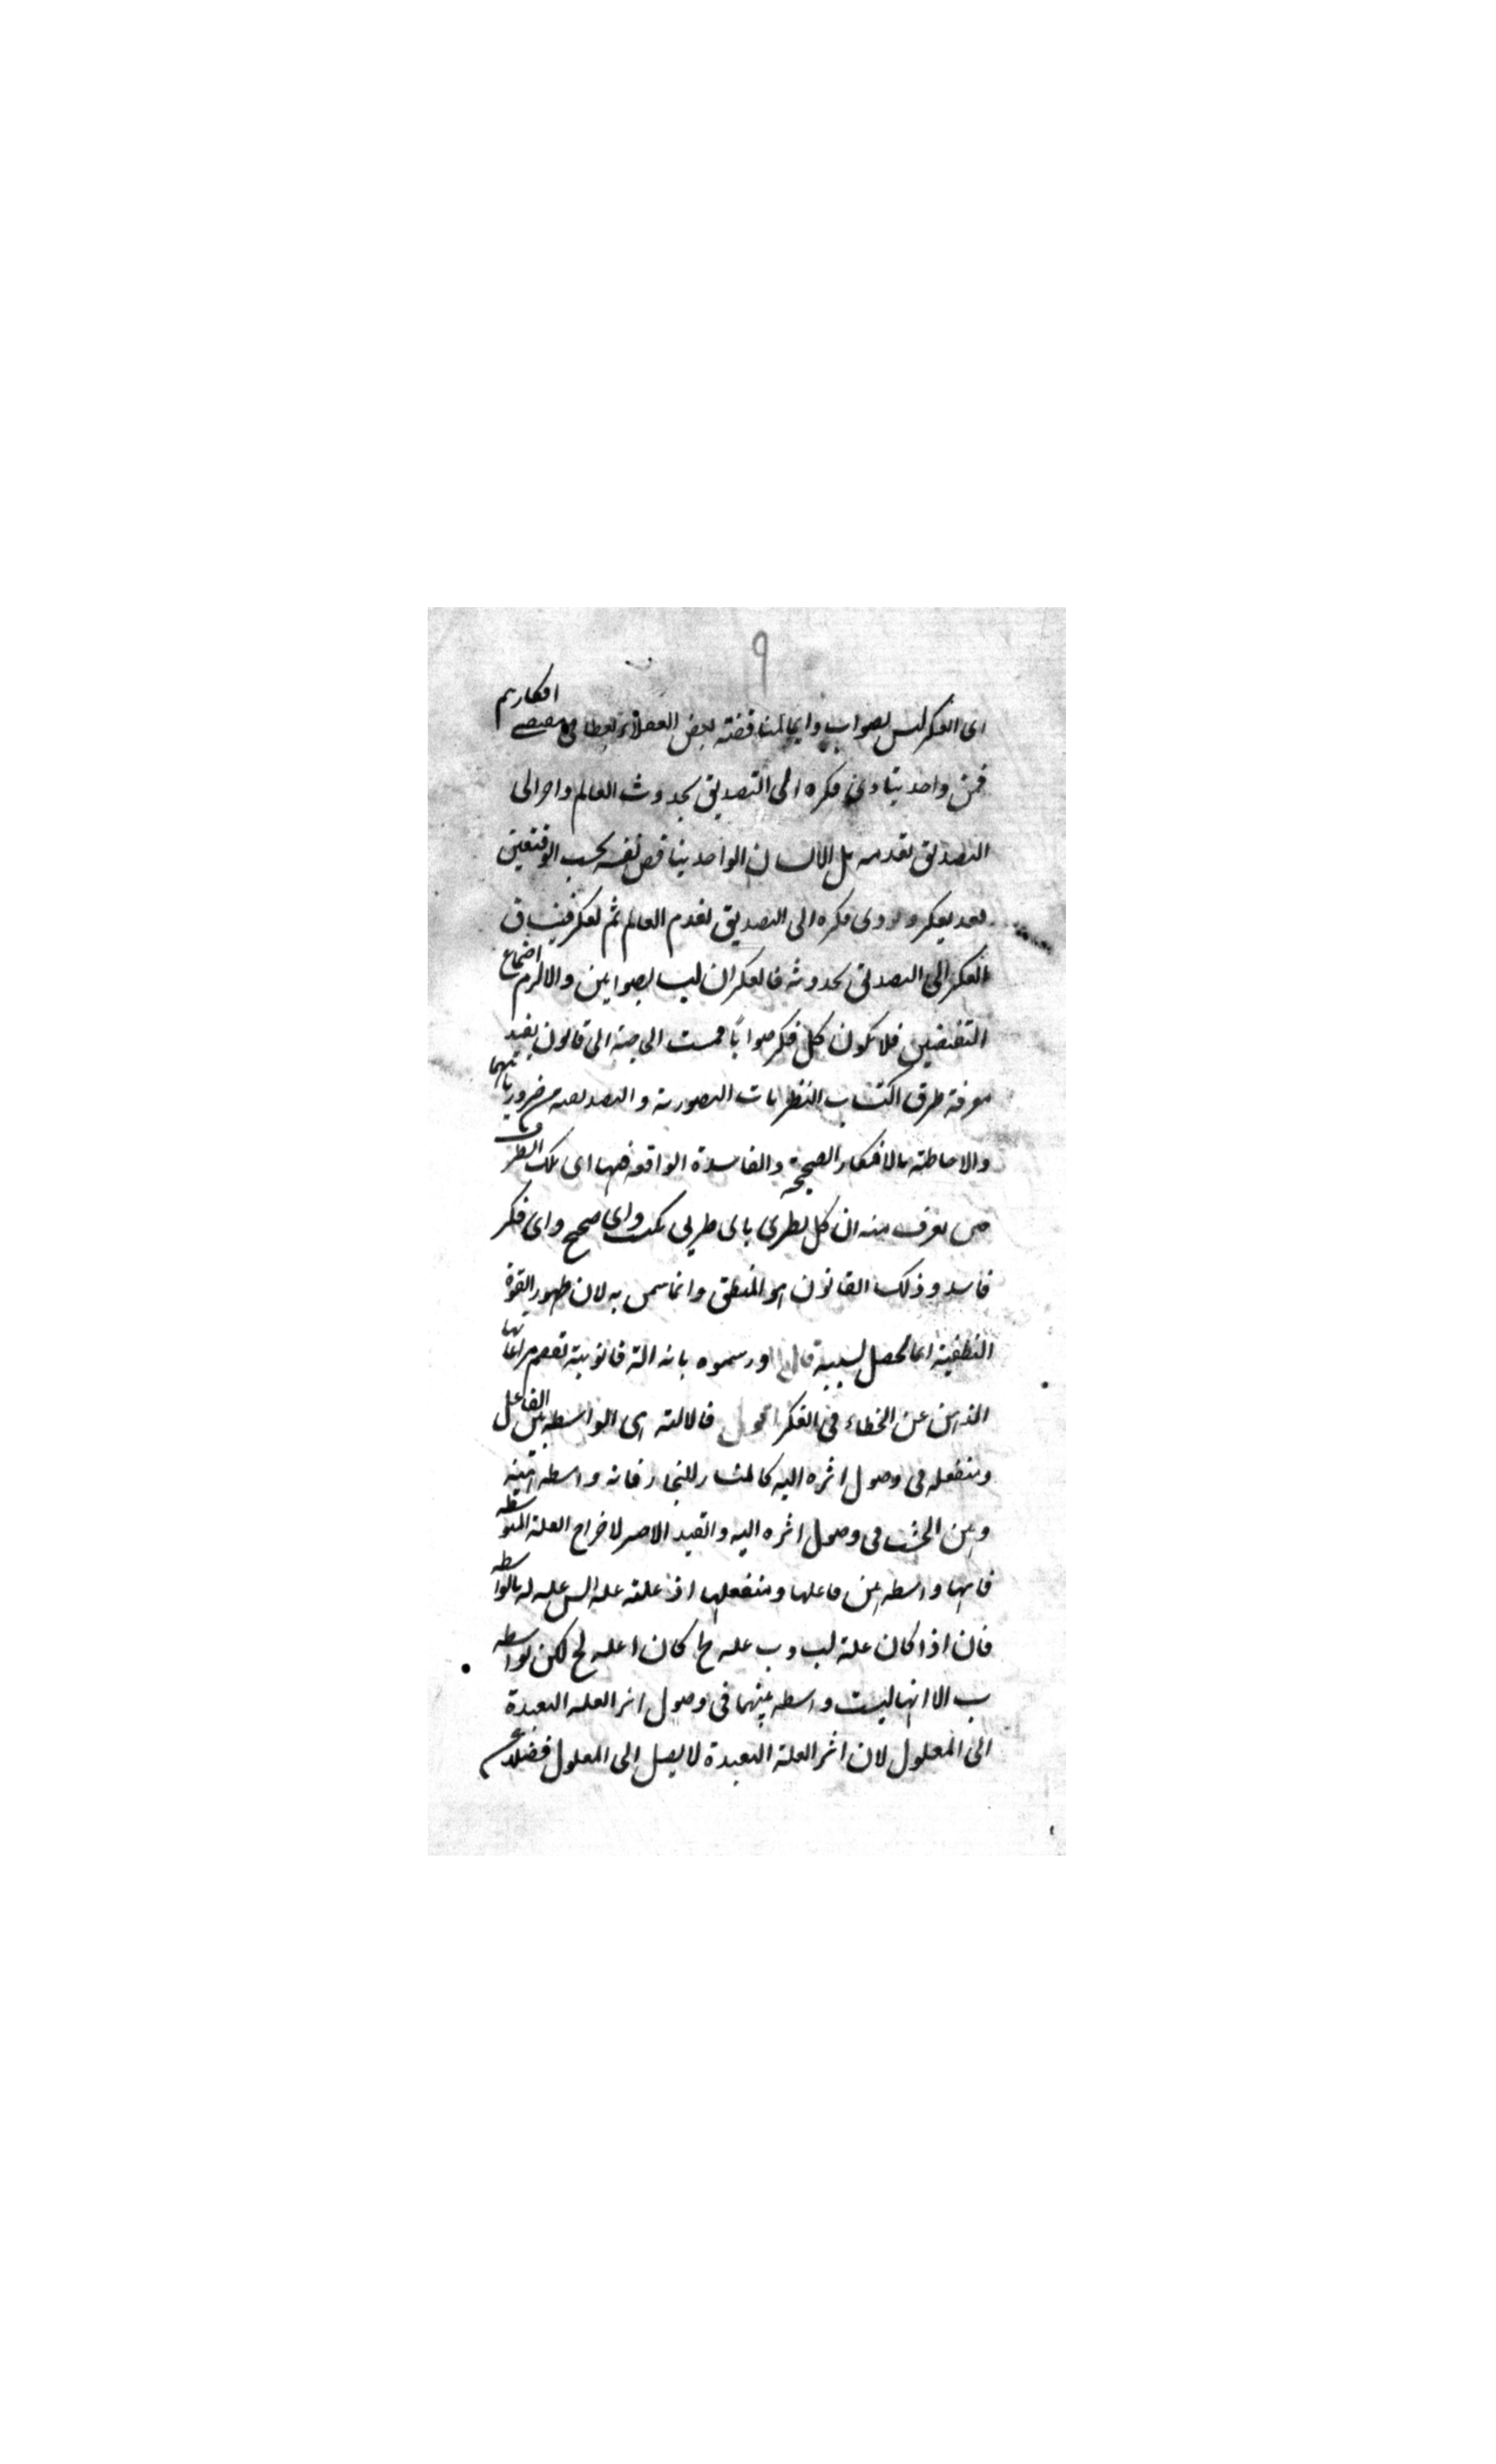 ٩
اى الفكر ليس بصواب دائما لمناقضة بعض العقلاء بعضا فى مقتضى افكارهم
فمن واحد يتادى فكره الى التصديق بحدوث العالم واخر الى
التصديق بقدمه بل الانسان الواحد يناقض نفسه بحسب الوقتين
فقد يفكر ويودى فكره الى التصديق بقدم العالم ثم يفكر فينساق
الفكر الى التصديق بحدوثه فالفكران ليسا بصوابين والا لزم اجتماع
النقيضين فلا يكون كل فكر صوابا فمست الحاجة الى قانون يفيد
معرفة طرق اكتساب النظريات التصورية والتصديقية من ضرورياتهما
والاحاطة بالافكار الصحيحة والفاسدة الواقعة فيها اى تلك الطرق
حتى يعرف منه ان كل نظرى باى طريق يكتسب واى صحيح واى فكر
فاسد وذلك القانون هو المنطق وانما سمى به لان ظهور القوة
النطقية انما يحصل بسببه قال ورسموه بانه الة قانونية تعصم مراعاتها
الذهن عن الخطاء فى الفكر اقول فالالة هى الواسطة بين الفاعل
ومنفعله فى وصول اثره اليه كالمنشار للنجار فانه واسطة بينه
وبين الخشب فى وصول اثره اليه والقيد الاخير لاخراج العلة المتوسطة
فانها واسطة بين فاعلها ومنفعلها اذ علة علة الشى علة له بالواسطة
فان ا اذا كان علة لب وب علة لج كان ا علة لج لكن بواسطة
ب الا انها ليست واسطة بينهما فى وصول اثر العلة البعيدة
الى المعلول لان اثر العلة البعيدة لا يصل الى المعلول فضلا عن